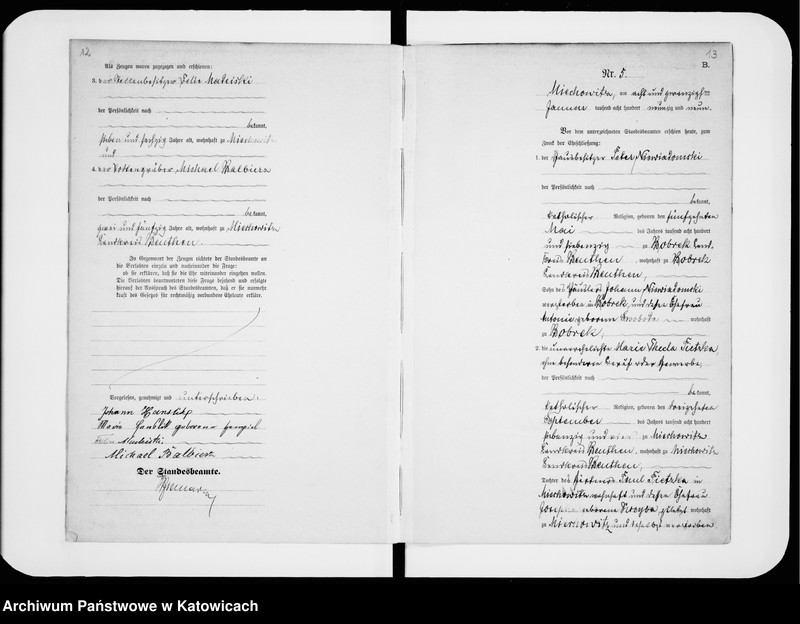 12
Als Zeugen waren zugezogen und erschienen:
3. der Stellenbesitzer
der Persönlichkeit nach
bekannt,
sieben und sechzig Jahre alt, wohnhaft zu Miechowitz
und
4. der Michael Balbierz
der Persönlichkeit nach
bekannt,
zwei und fünfzig Jahre alt, wohnhaft zu Miechowitz
Landkreis Beuthen.
In Gegenwart der Zeugen richtete der Standesbeamte an
die Verlobten einzeln und nacheinander die Frage:
ob sie erklären, daß sie die Ehe miteinander eingehen wollen.
Die Verlobten beantworteten diese Frage bejahend und erfolgte
hierauf der Ausspruch des Standesbeamten, daß er sie nunmehr
kraft des Gesetzes für rechtmäßig verbundene Eheleute erkläre.
Vorgelesen, genehmigt und unterschrieben:
Johann
geborene
Michael Balbierz
Der Standesbeamte.
13
B.
Nr. 5.
Miechowitz, am acht und zwanzigsten
Januar tausend acht hundert neunzig und neun.
Vor dem unterzeichneten Standesbeamten erschienen heute, zum
Zweck der Eheschließung:
1. der Hausbesitzer Peter Niewiadomski
der Persönlichkeit nach
bekannt,
katholischer Religion, geboren den fünfzehnten
Mai des Jahres tausend acht hundert
und siebenzig zu Bobrek Land-
kreis Beuthen, wohnhaft zu Bobrek
Landkreis Beuthen,
Sohn des Häuslers Johann Niewiadomski
verstorben in Bobrek, und dessen Ehefrau
Antonie geborenen Swoboda wohnhaft
zu Bobrek,
2. die unverehelichte Marie Theda Tietzka,
ohne besonderen Beruf oder Gewerbe,
der Persönlichkeit nach
bekannt,
katholischer Religion, geboren den dreizehnten
September des Jahres tausend acht hundert
siebenzig und vier zu Miechowitz
Landkreis Beuthen, wohnhaft zu Miechowitz
Landkreis Beuthen,
Tochter des Tietzka in
Miechowitz wohnhaft und dessen Ehefrau
geborene zuletzt wohnhaft
zu Miechowitz und daselbst verstorben
Archiwum Państwowe w Katowicach